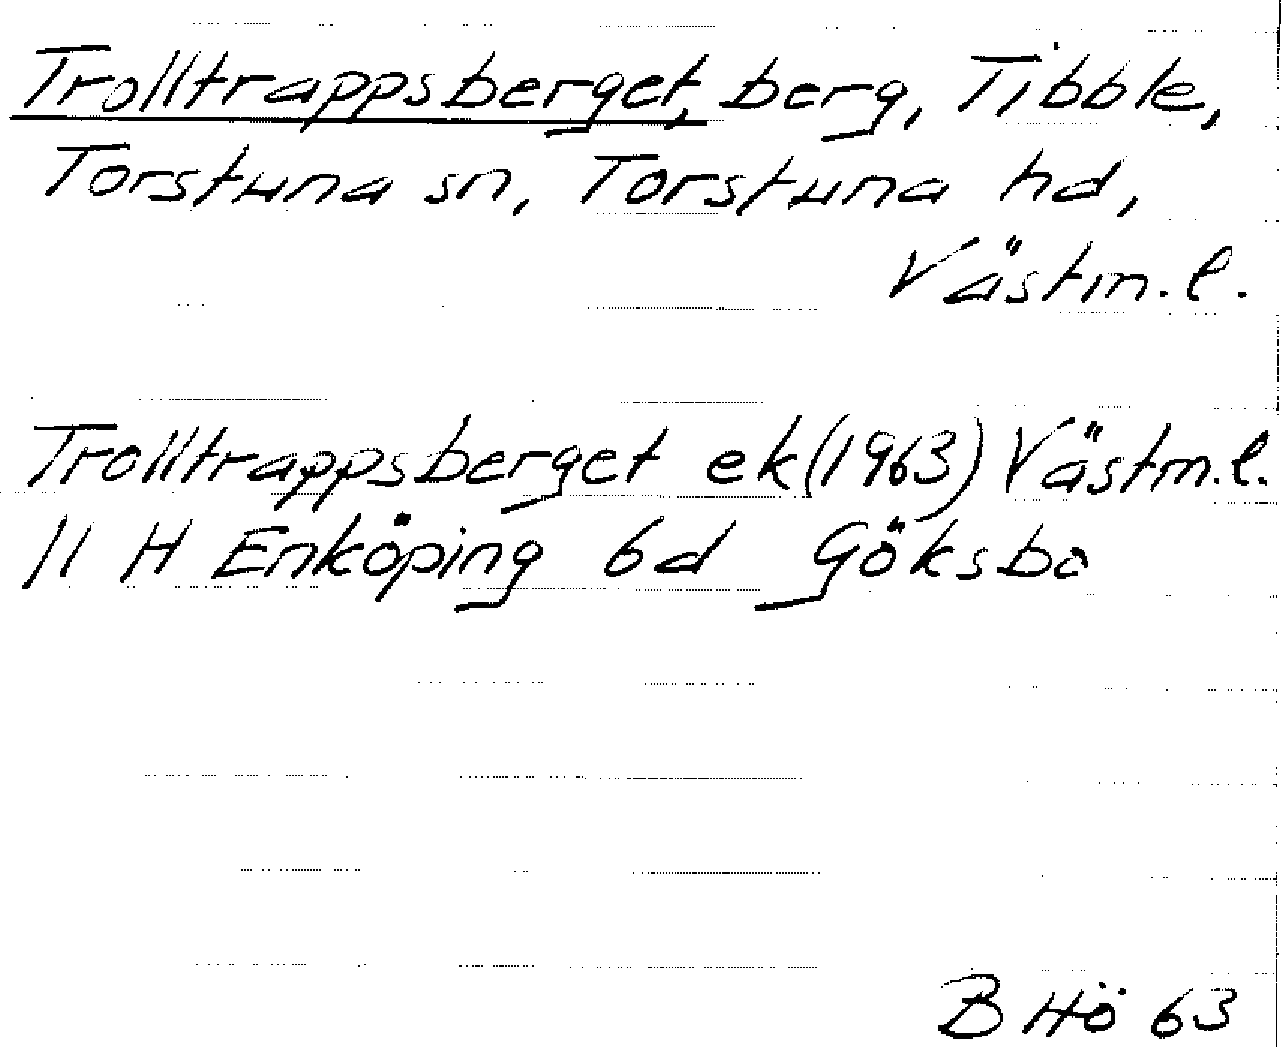 Trolltrappsberget, berg, Tibble,
Torstuna sn, Torstuna hd,
Västm.l.
Trolltrappsberget ek (1963) Västm.l.
11 H Enköping 6d Göksbo
B Hö 63